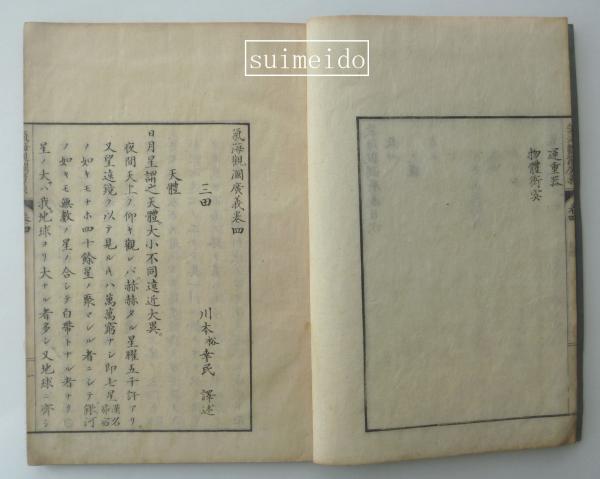 suimeido
運重器
物體衝突
氣海觀瀾廣義卷四
三田 川本裕幸民 譯述
天體
日月星謂之天體大小不同遠近大異
夜間天上ヲ仰キ觀レバ赫赫タル星曜五千許アリ
又望遠鏡ヲ以テ見ルキハ萬萬窮ナシ即七星
ノ如キモナホ四十餘星ノ聚マレル者ニシテ銀河
ノ如キモ無數ノ星ノ合シテ白帶トナル者ナリ
星ノ大ハ我地球ヨリ大ナル者多シ又地球ニ齊シ